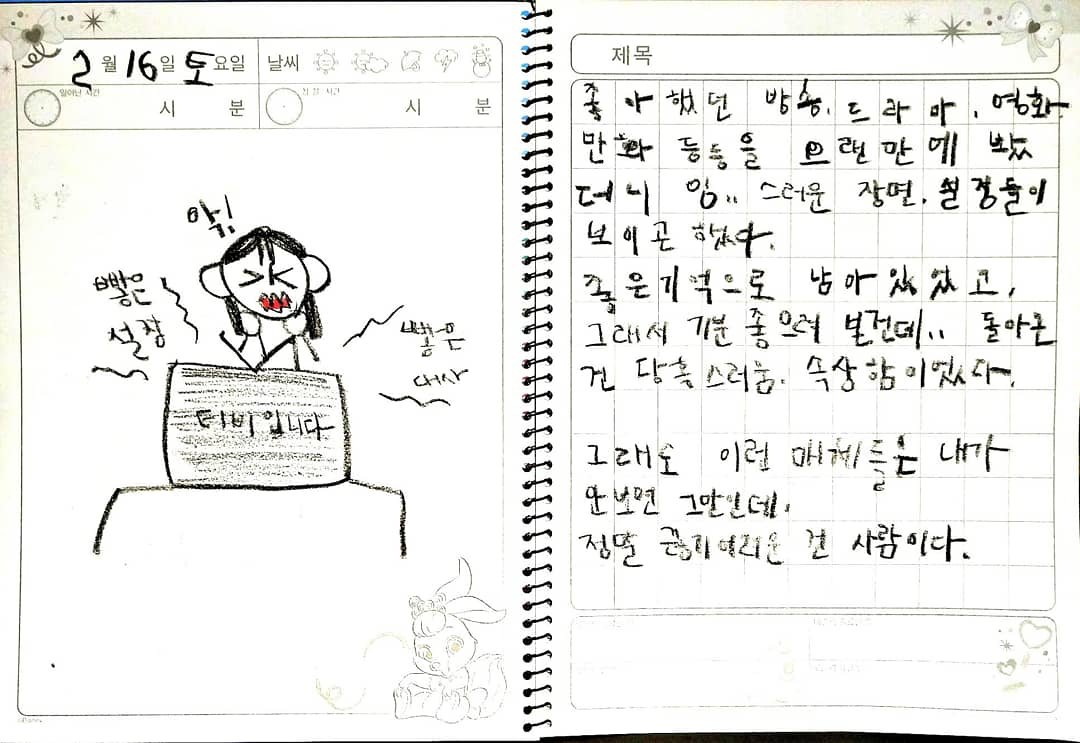 2월 16일 토요일 날씨
일어난 시간 시 분 잠 잘 시간 시 분
악!
빻은
설정
빻은
대사
티비입니다
제목
좋아했던 방송, 드라마, 영화
만화 등등을 오랜만에 봤
더니 읭.. 스러운 장면, 설정들이
보이곤 했다.
좋은기억으로 남아있었고,
그래서 기분좋으려 본건데.. 돌아온
건 당혹스러움, 속상함이었다.
그래도 이런 매체들은 내가
안보면 그만인데,
정말 끊기어려운 건 사람이다.